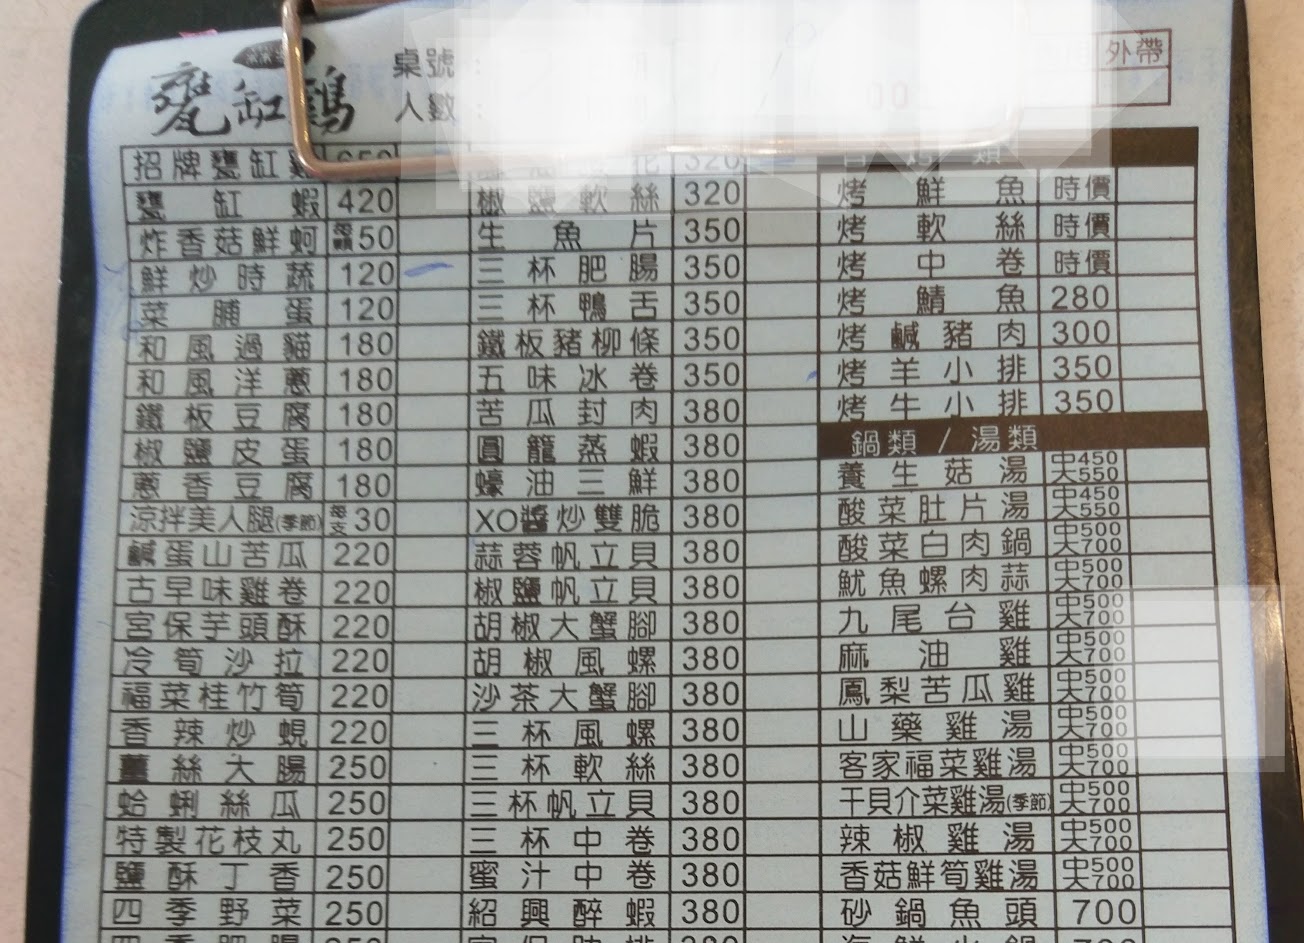 甕缸雞
桌號:
人數:
外帶
招牌甕缸雞 650
甕缸蝦 420
炸香菇鮮蚵 每顆50
鮮炒時蔬 120
菜脯蛋 120
和風過貓 180
和風洋蔥 180
鐵板豆腐 180
椒鹽皮蛋 180
蔥香豆腐 180
涼拌美人腿(季節) 每支30
鹹蛋山苦瓜 220
古早味雞卷 220
宮保芋頭酥 220
冷筍沙拉 220
福菜桂竹筍 220
香辣炒蜆 220
薑絲大腸 250
蛤蜊絲瓜 250
特製花枝丸 250
鹽酥丁香 250
四季野菜 250
四季肥腸
320
椒鹽軟絲 320
生魚片 350
三杯肥腸 350
三杯鴨舌 350
鐵板豬柳條 350
五味冰卷 350
苦瓜封肉 380
圓籠蒸蝦 380
蠔油三鮮 380
XO醬炒雙脆 380
蒜蓉帆立貝 380
椒鹽帆立貝 380
胡椒大蟹腳 380
胡椒風螺 380
沙茶大蟹腳 380
三杯風螺 380
三杯軟絲 380
三杯帆立貝 380
三杯中卷 380
蜜汁中卷 380
紹興醉蝦 380
烤鮮魚 時價
烤軟絲 時價
烤中卷 時價
烤鯖魚 280
烤鹹豬肉 300
烤羊小排 350
烤牛小排 350
鍋類 / 湯類
養生菇湯 中450 大550
酸菜肚片湯 中450 大550
酸菜白肉鍋 中500 大700
魷魚螺肉蒜 中500 大700
九尾台雞 中500 大700
麻油雞 中500 大700
鳳梨苦瓜雞 中500 大700
山藥雞湯 中500 大700
客家福菜雞湯 中500 大700
干貝介菜雞湯(季節) 中500 大700
辣椒雞湯 中500 大700
香菇鮮筍雞湯 中500 大700
砂鍋魚頭 700
海鮮火鍋